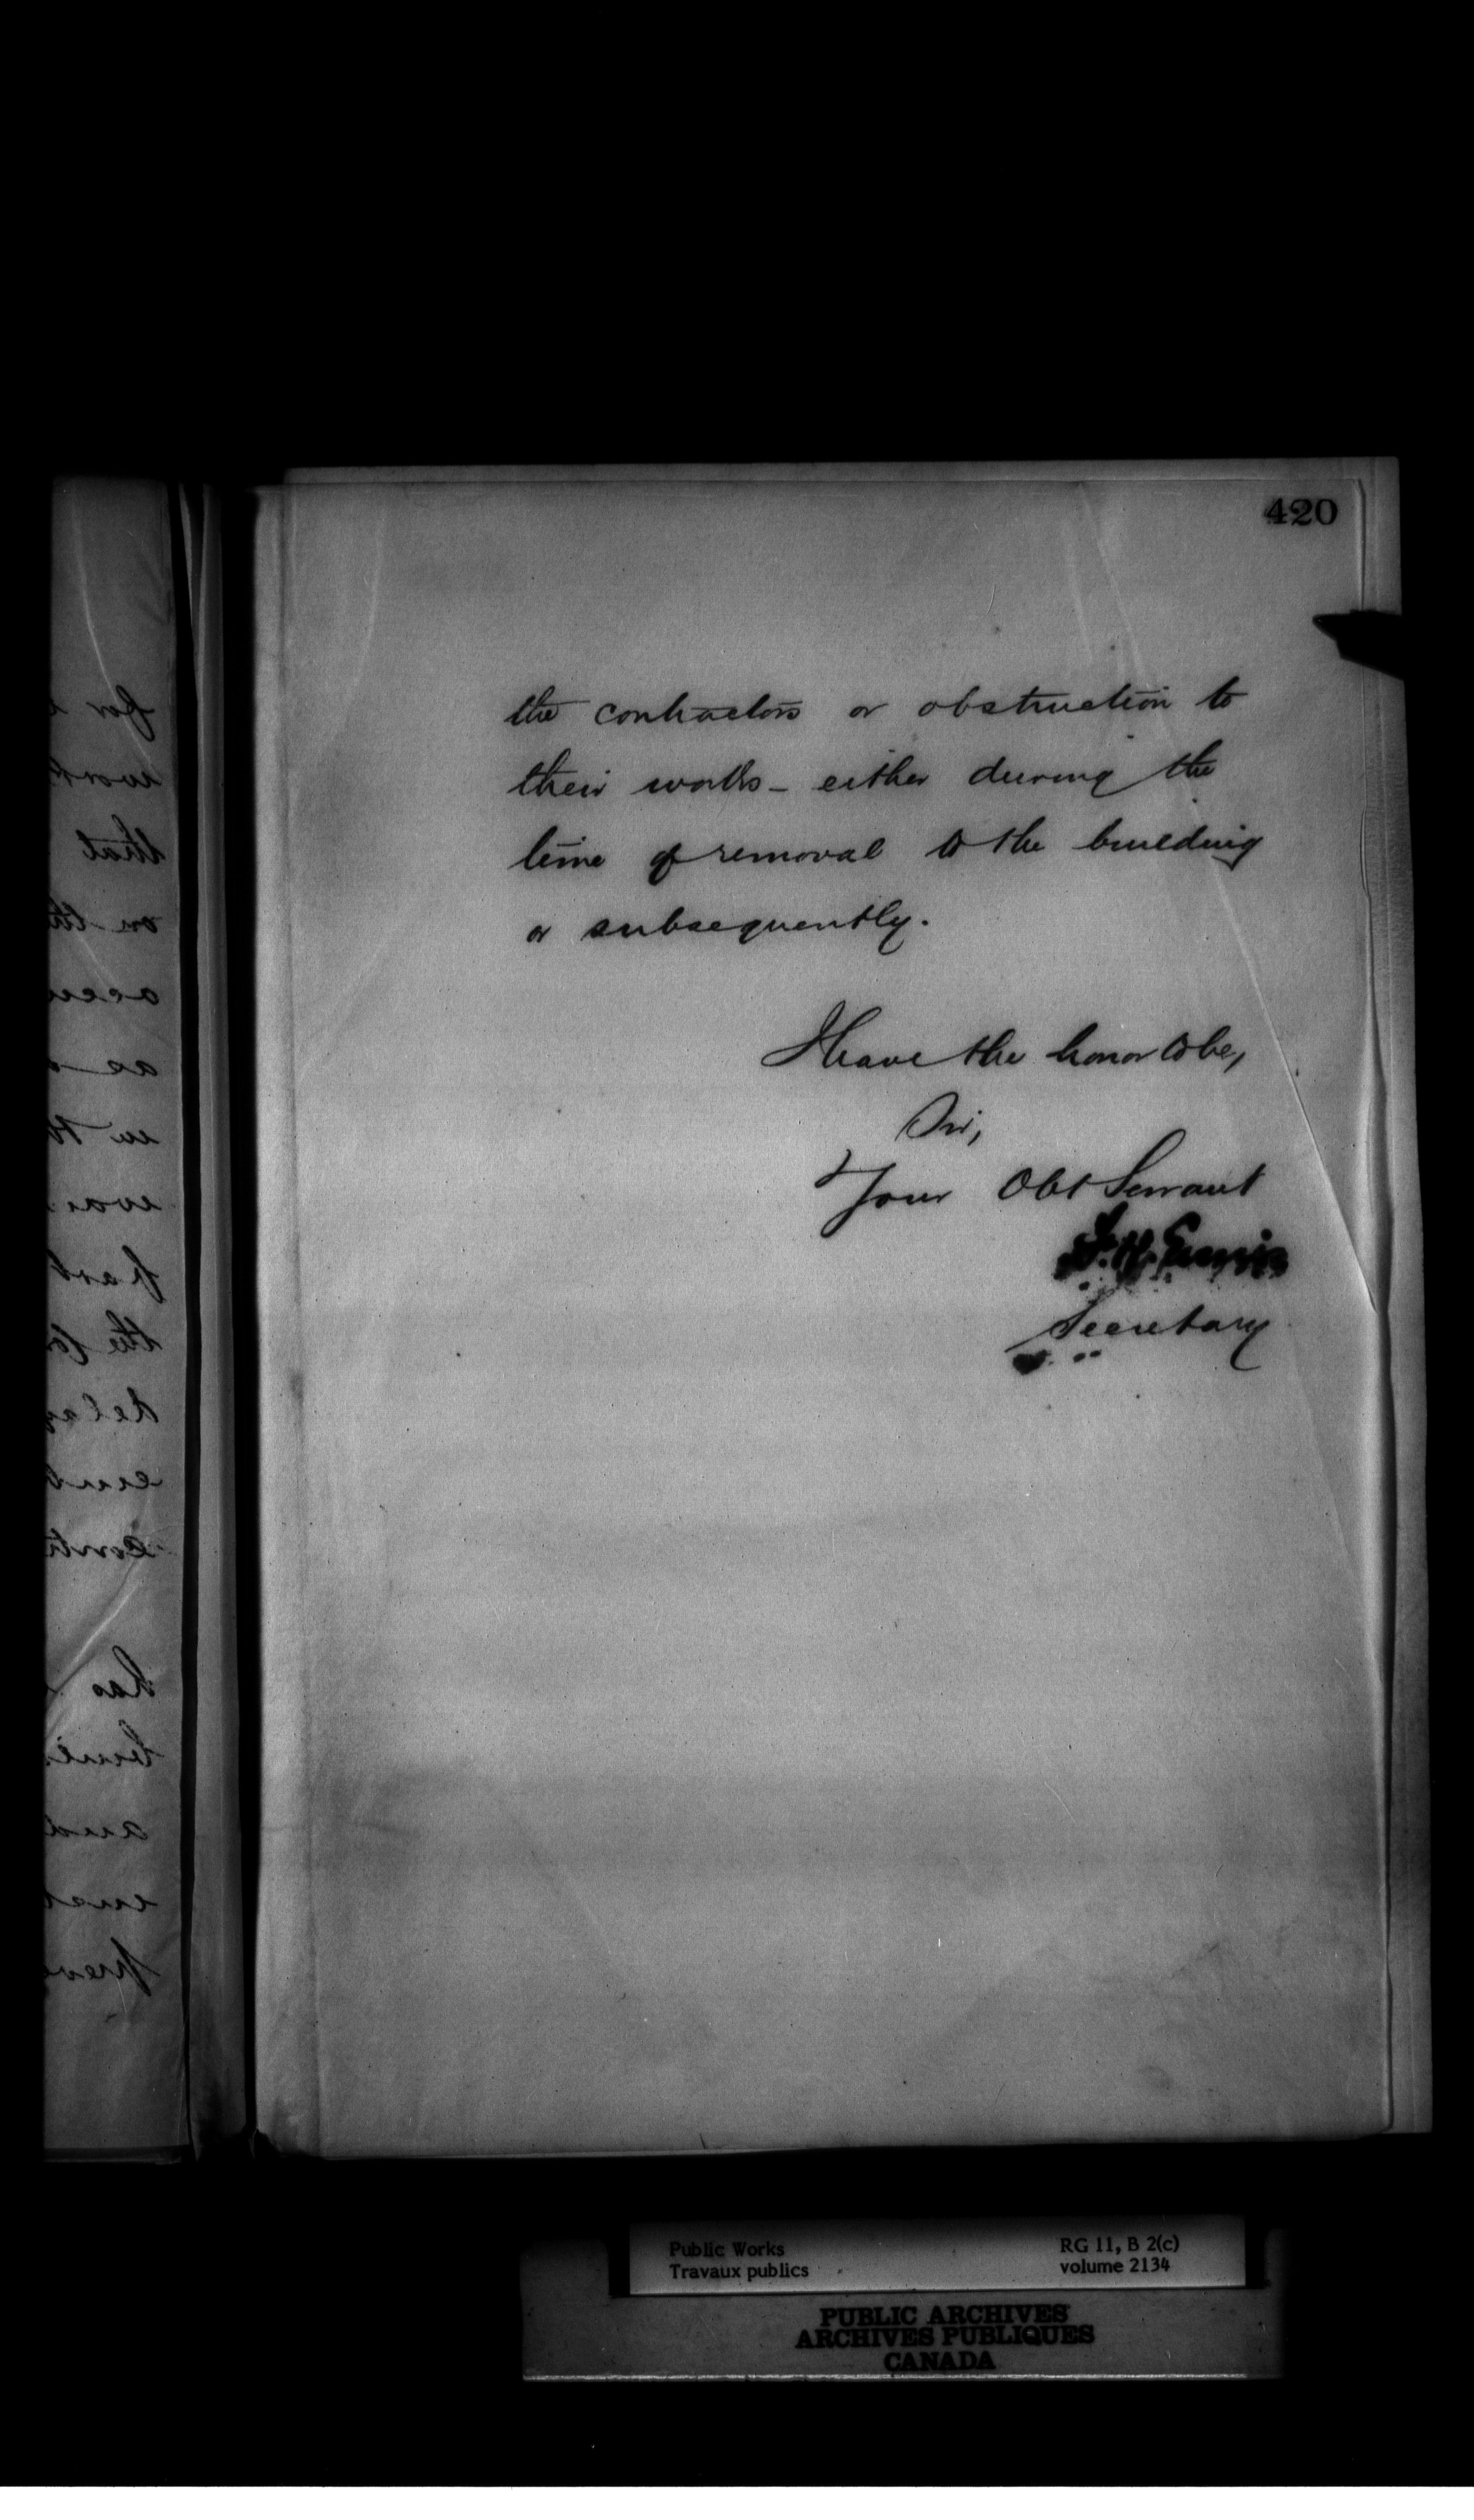 420
the contractors or obstruction to
their works - either during the
time of removal to the building
or subsequently.
I have the honor to be,
Sir,
Your Obt Servant
F. H. Ennis
Secretary
Public Works
Travaux publics
RG 11, B 2(c)
volume 2134
PUBLIC ARCHIVES
ARCHIVES PUBLIQUES
CANADA